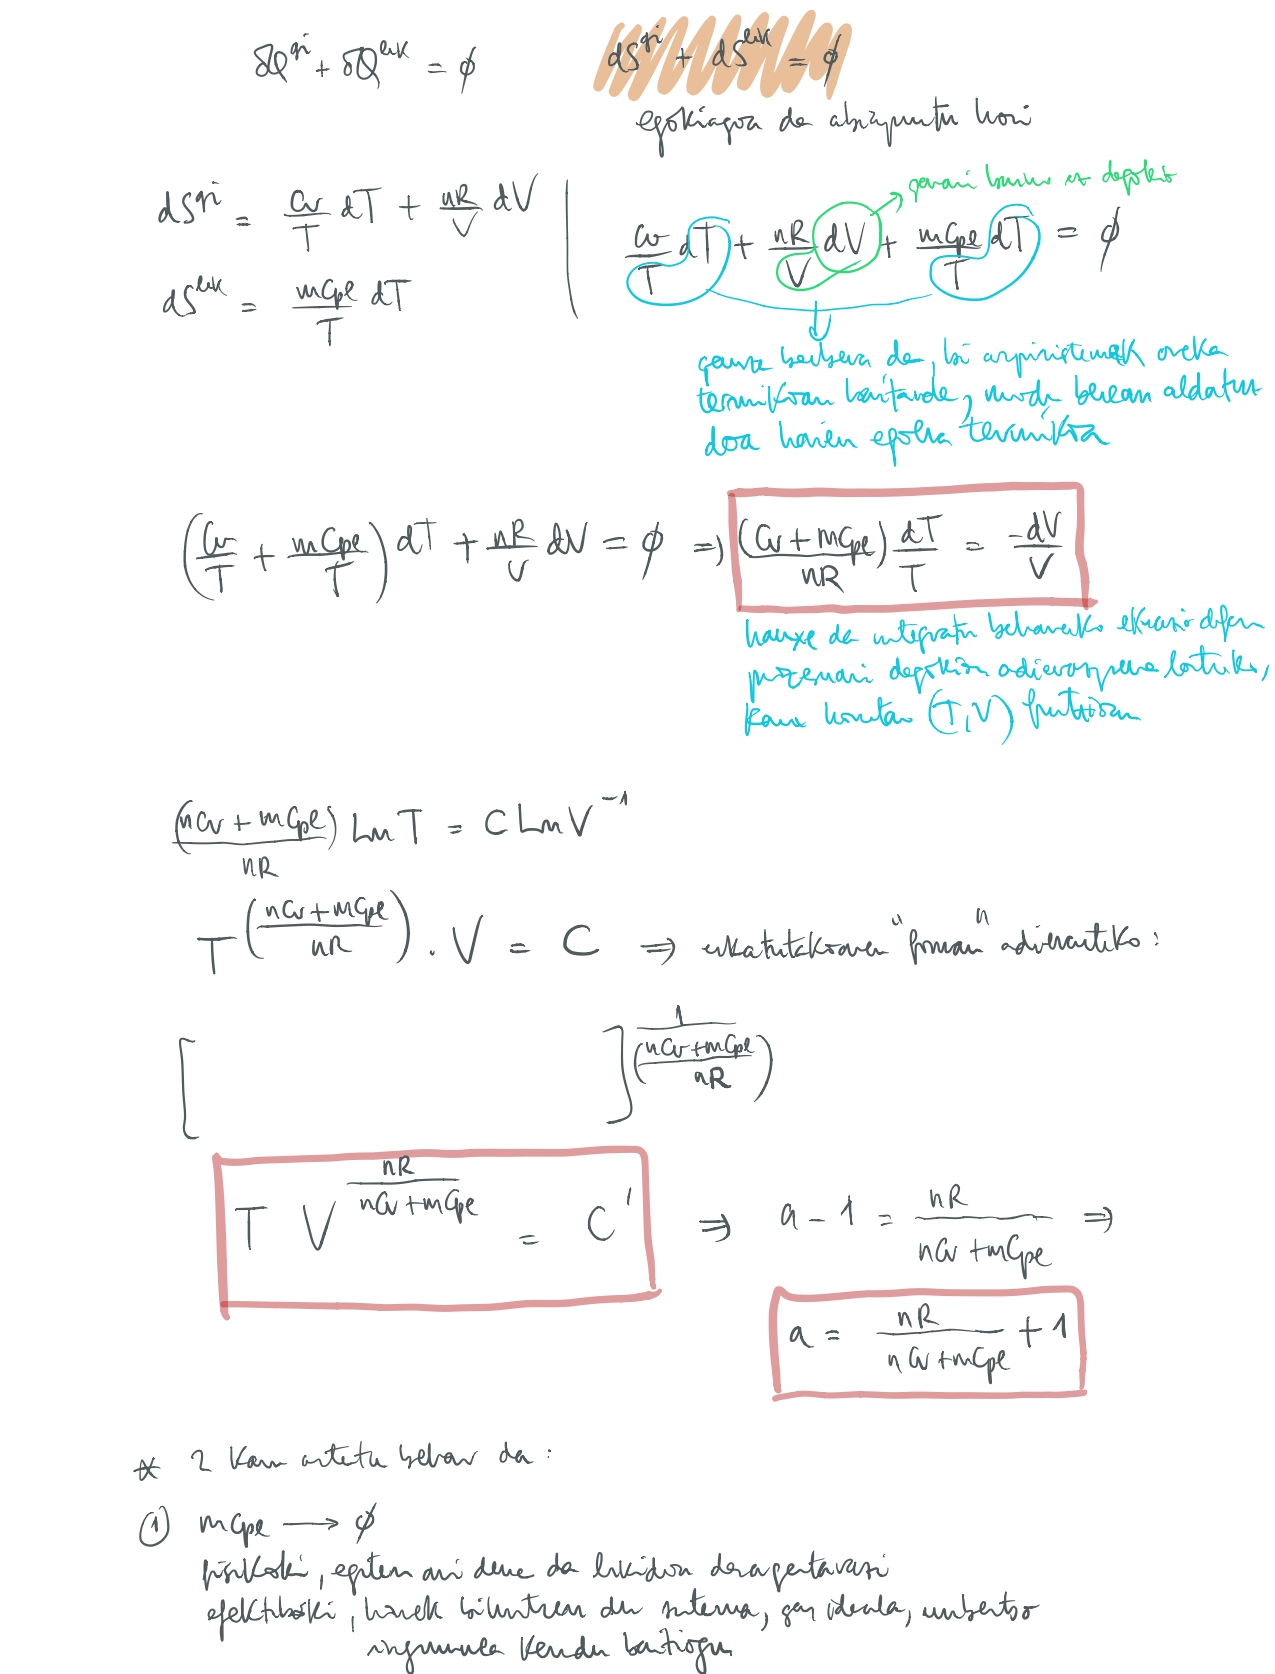 δQ^gi + δQ^lik = ϕ
dS^gi + dS^lik = ϕ
egokiagoa da abiapuntu hori
dS^gi = Cv/T dT + nR/V dV
dS^lik = mCpl/T dT
gasari baino ez dagokio
Cv/T dT + nR/V dV + mCpl/T dT = ϕ
gauza berbera da, bi azpisistemak oreka
termikoan baitaude, modu berean aldatuz
doa haien egoera termikoa
(Cv/T + mCpl/T) dT + nR/V dV = ϕ ⇒ (Cv + mCpl)/nR dT/T = -dV/V
hauxe da integratu beharreko ekuazio diferen
prozesuari dagokion adierazpena lortzeko,
kasu honetan (T,V) funtzioan
(nCv + mCpl)/nR Ln T = C Ln V^-1
T^((nCv + mCpl)/nR) . V = C ⇒ "forman" adierazteko :
[ ]^(1/((nCv + mCpl)/nR))
T V^(nR/(nCv + mCpl)) = C' ⇒ a - 1 = nR/(nCv + mCpl) ⇒
a = nR/(nCv + mCpl) + 1
* 2 kasu aztertu behar da :
① mCpl → ϕ
fisikoki, egiten ari dena da likidoa desagertarazi
efektiboki, honek bihurtzen du sistema, gas ideala,
ingurunea kendu baitiogu